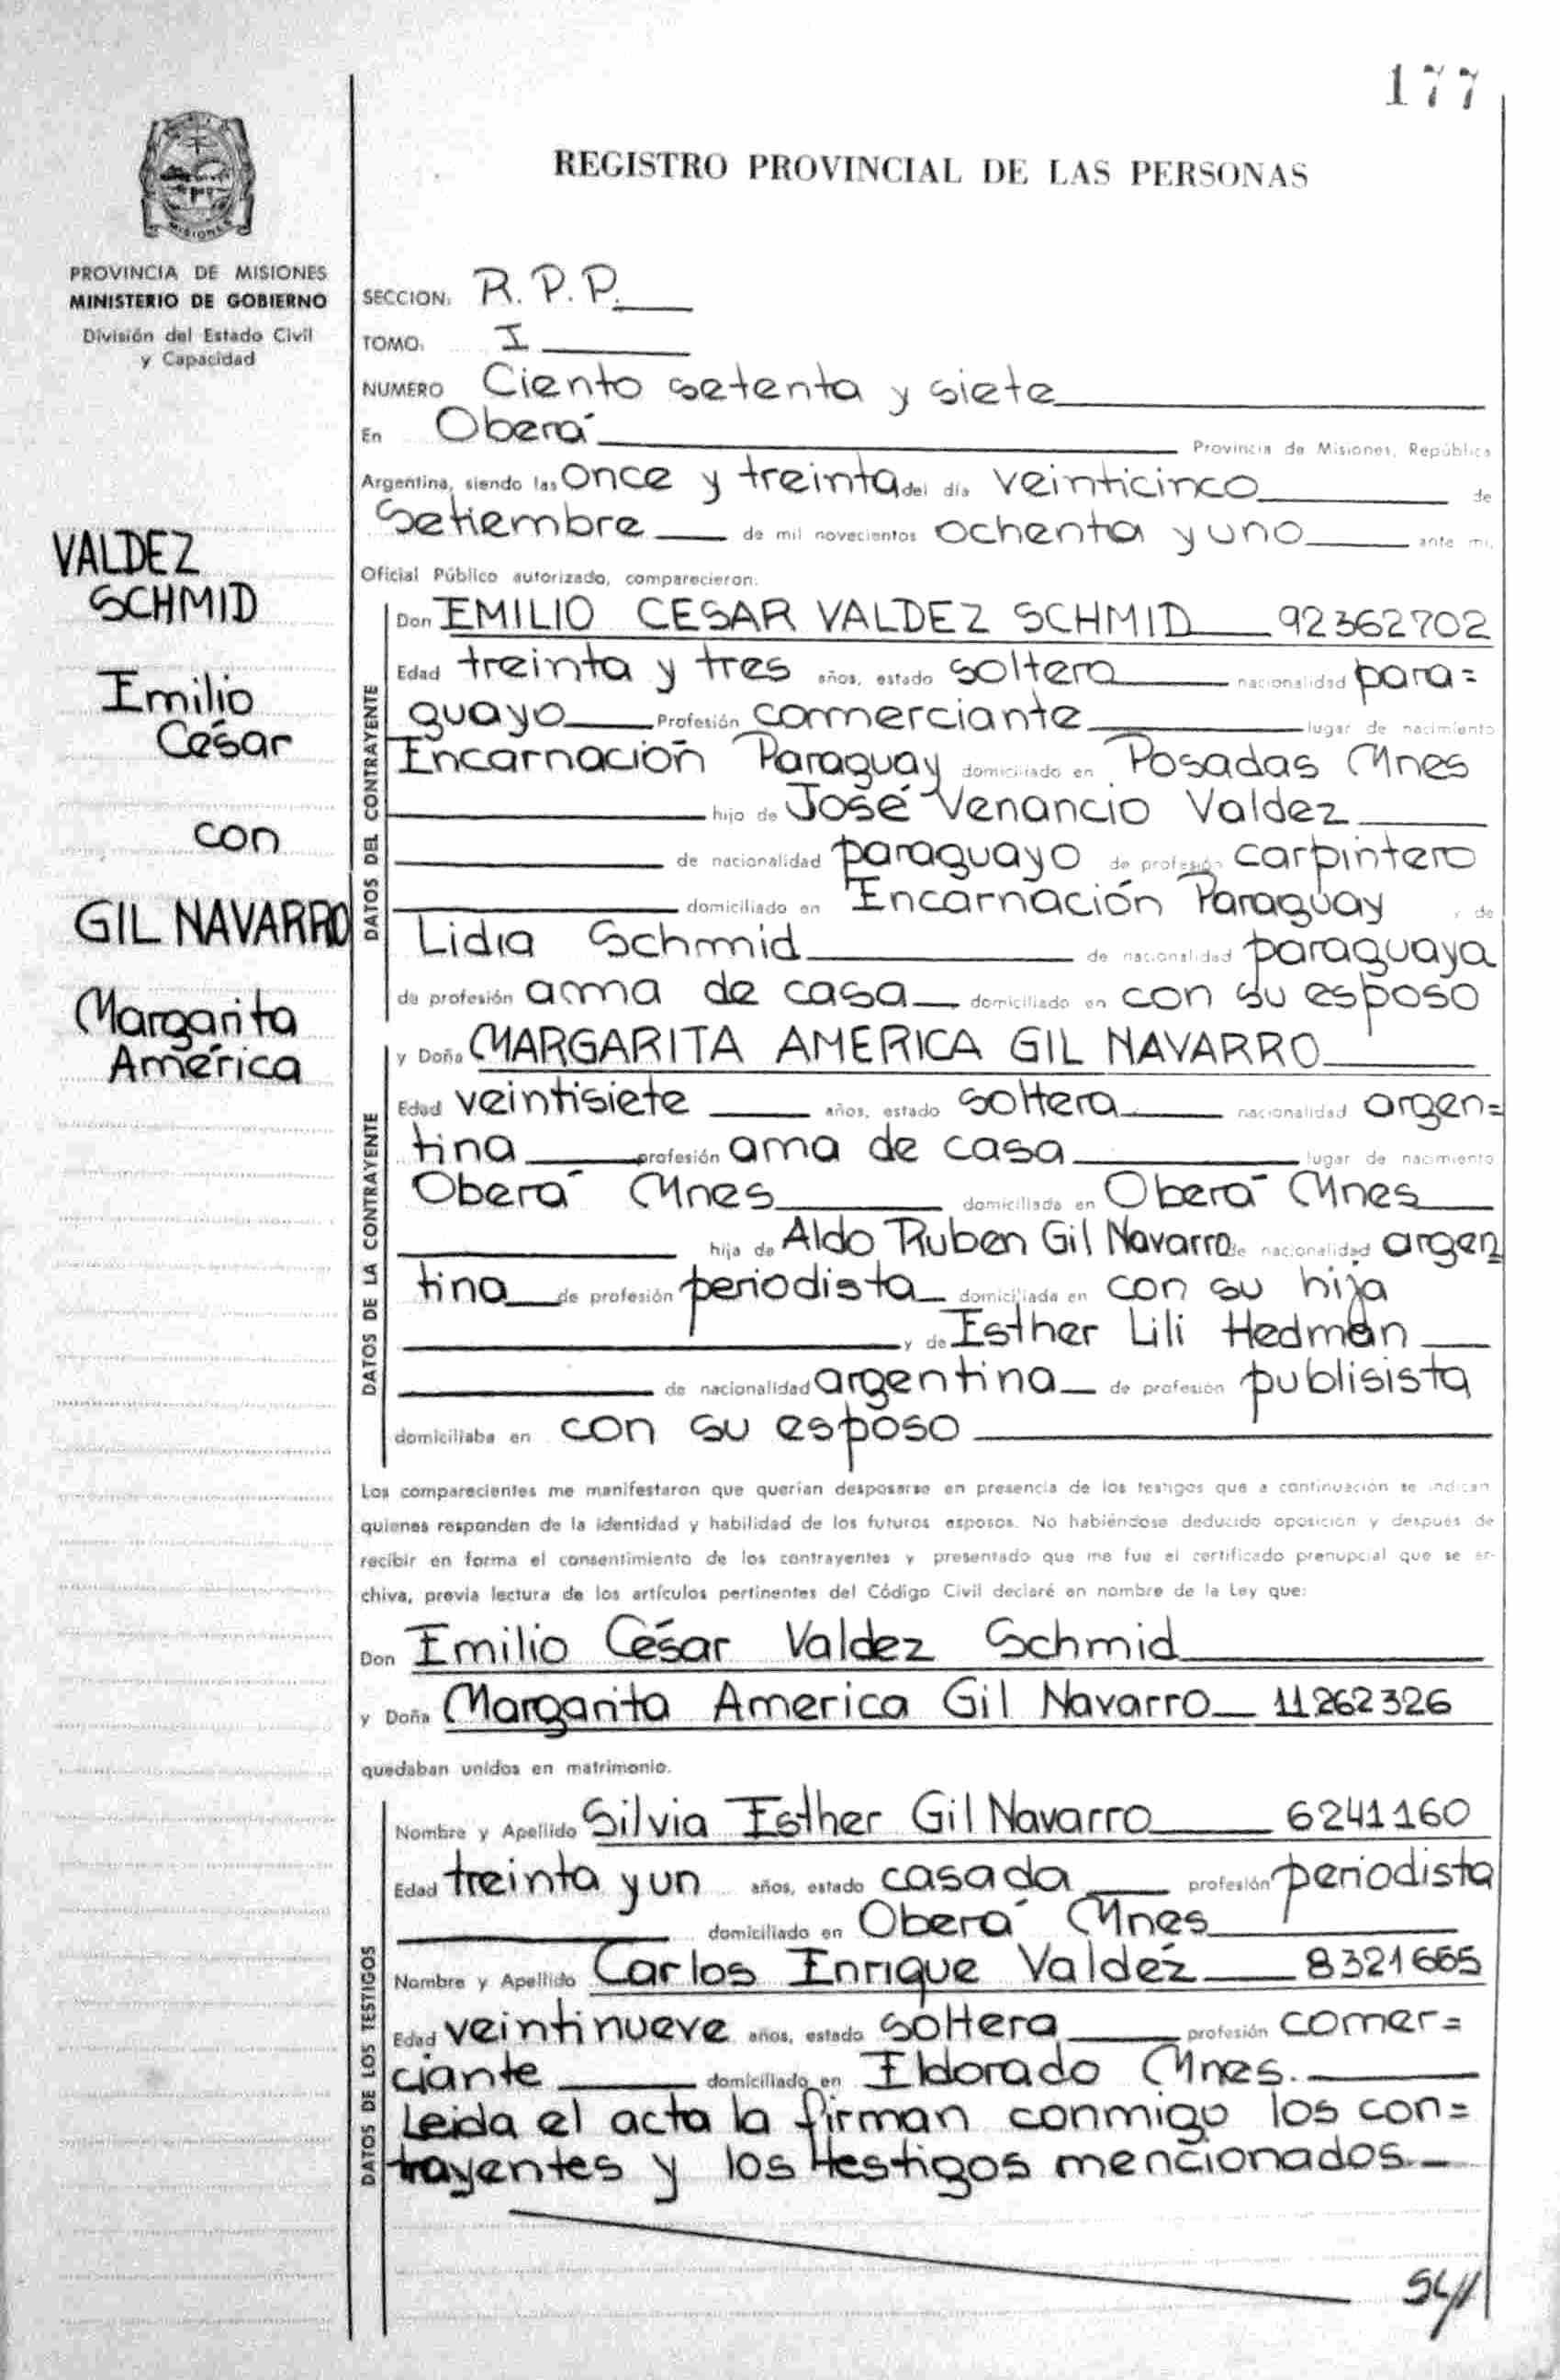 177
MISIONES
PROVINCIA DE MISIONES
MINISTERIO DE GOBIERNO
División del Estado Civil
y Capacidad
VALDEZ
SCHMID
Emilio
César
con
GIL NAVARRO
Margarita
América
REGISTRO PROVINCIAL DE LAS PERSONAS
SECCION: R. P. P.
TOMO: I
NUMERO Ciento setenta y siete
En Oberá Provincia de Misiones, República
Argentina, siendo las once y treinta del día veinticinco de
Setiembre de mil novecientos ochenta y uno ante mi,
Oficial Público autorizado, comparecieron:
DATOS DEL CONTRAYENTE
Don EMILIO CESAR VALDEZ SCHMID 92362702
Edad treinta y tres años, estado soltero nacionalidad para=
guayo Profesión commerciante lugar de nacimiento
Encarnación Paraguay domiciliado en Posadas Mnes
hijo de José Venancio Valdez
de nacionalidad paraguayo de profesión carpintero
domiciliado en Encarnación Paraguay y de
Lidia Schmid de nacionalidad paraguaya
de profesión amma de casa domiciliado en con su esposo
DATOS DE LA CONTRAYENTE
y Doña MARGARITA AMERICA GIL NAVARRO
Edad veintisiete años, estado soltera nacionalidad argen=
tina profesión ama de casa lugar de nacimiento
Oberá Mnes domiciliada en Oberá Mnes
hija de Aldo Ruben Gil Navarro de nacionalidad argen
tina de profesión periodista domiciliada en con su hija
y de Esther Lili Hedman
de nacionalidad argentina de profesión publisista
domiciliaba en con su esposo
Los comparecientes me manifestaron que querían desposarse en presencia de los testigos que a continuación se indican
quienes responden de la identidad y habilidad de los futuros esposos. No habiéndose deducido oposición y después de
recibir en forma el consentimiento de los contrayentes y presentado que me fue el certificado prenupcial que se ar-
chiva, previa lectura de los artículos pertinentes del Código Civil declaré en nombre de la Ley que:
Don Emilio César Valdez Schmid
y Doña Margarita America Gil Navarro 11262326
quedaban unidos en matrimonio.
DATOS DE LOS TESTIGOS
Nombre y Apellido Silvia Esther Gil Navarro 6241160
Edad treinta y un años, estado casada profesión periodista
domiciliado en Oberá Mnes
Nombre y Apellido Carlos Enrique Valdéz 8321665
Edad veintinueve años, estado soltero profesión comer=
ciante domiciliado en Eldorado Mnes.
Leida el acta la firman conmigo los con=
trayentes y los testigos mencionados.-